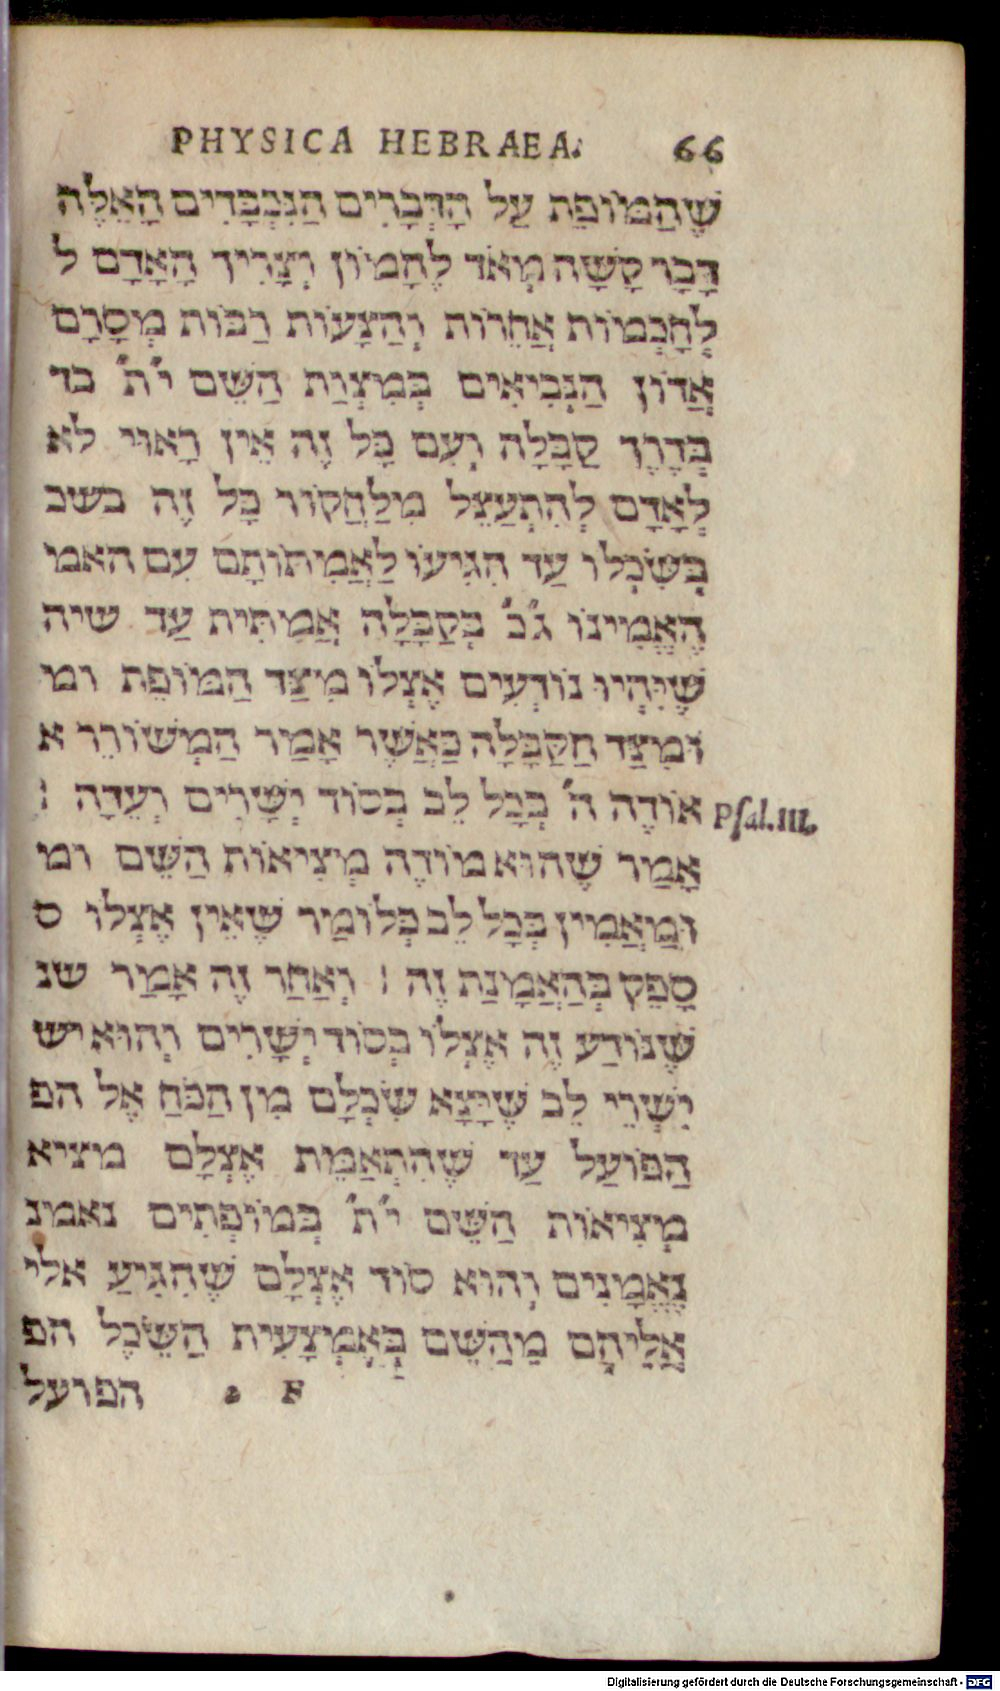 PHYSICA HEBRAEA. 66
שֶׁהַמּוֹפֵת עַל הָדְּבָרִים הַנִּכְבָּדִים הָאֵלֶּה
דָּבָר קָשֶׁה מְאֹד לֶהָמוֹן וְצָרִיךְ הָאָדָם ל
לְחָכְמוֹת אֲחֵרוֹת וְהַצָּעוֹת רַבּוֹת מְסָרָם
אֲדוֹן הַנְּבִיאִים בְּמִצְוַת הַשֵּׁם י״ת״ בד
בְּדֶרֶךְ קַבָּלָה וְעִם כָּל זֶה אֵין רָאוּי לא
לְאָדָם לְהִתְעַצֵּל מִלַּחֲקוֹר כָּל זֶה בשכ
בְּשִׂכְלוֹ עַד הִגִּיעוֹ לַאֲמִתּוּתָם עִם האמ
הֶאֱמִינוֹ ג״כ״ בְּקַבָּלָה אֲמִתִּית עַד שיה
שֶׁיִּהְיוּ נוֹדְעִים אֶצְלוֹ מִצַּד הַמּוֹפֵת ומ
וּמִצַּד הַקַּבָּלָה כַּאֲשֶׁר אָמַר הַמְשׁוֹרֵר א
אוֹדֶה ה״ בְּכָל לֵב בְּסוֹד יְשָׁרִים וְעֵדָה :
Psal.III.
אָמַר שֶׁהוּא מוֹדֶה מְצִיאוֹת הַשֵּׁם ומ
וּמַאֲמִין בְּכָל לֵב כְּלוֹמַר שֶׁאֵין אֶצְלוֹ ס
סָפֵק בְּהַאֲמָנַת זֶה : וְאַחַר זֶה אָמַר שנ
שֶׁנּוֹדַע זֶה אֶצְלוֹ בְּסוֹד יְשָׁרִים וְהוּא יש
יִשְׁרֵי לֵב שֶׁיָּצָא שִׂכְלָם מִן הַכֹּחַ אֶל הפ
הַפּוֹעַל עַד שֶׁהִתְאַמֵּת אֶצְלָם מציא
מְצִיאוֹת הַשֵּׁם י״ת״ בְּמוֹפְתִים נאמנ
נֶאֱמָנִים וְהוּא סוֹד אֶצְלָם שֶׁהִגִּיעַ אלי
אֲלֵיהֶם מֵהַשֵּׁם בְּאֶמְצָעִית הַשֵּׂכֶל הפ
F . הפועל
Digitalisierung gefördert durch die Deutsche Forschungsgemeinschaft - DFG